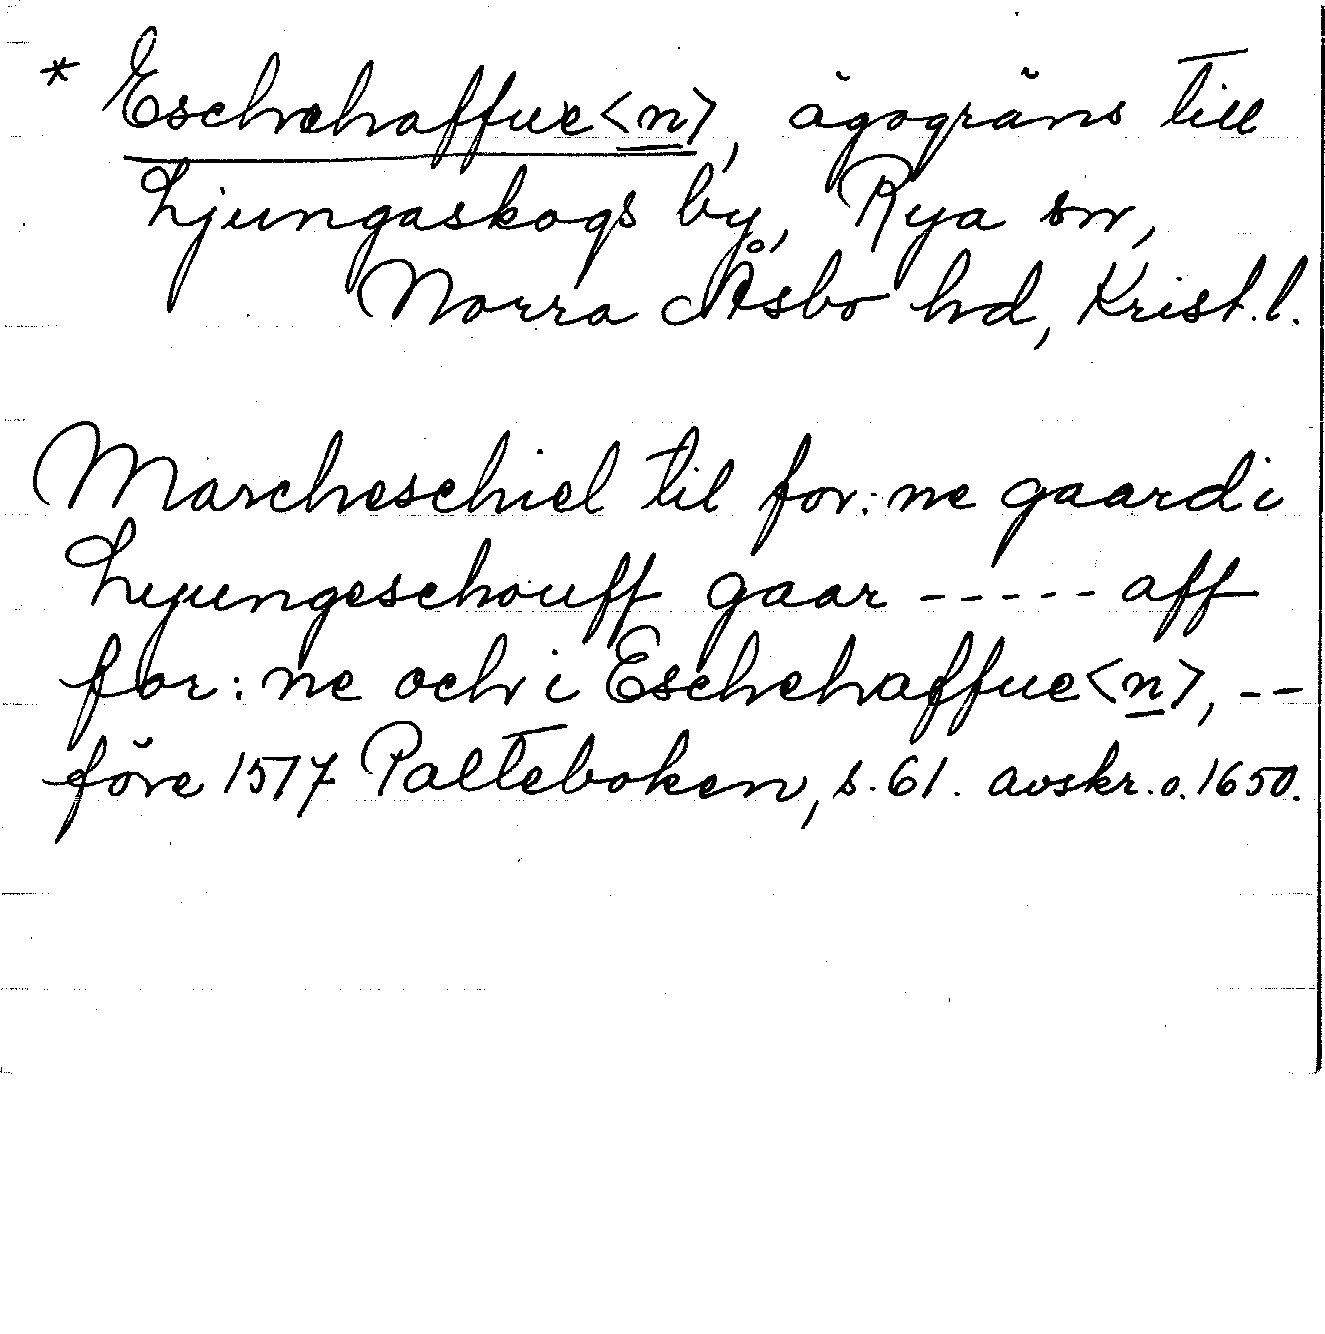 * Eschehaffue<n>, ägogräns till
Ljungaskogs by, Rya sn,
Norra Åsbo hd, Krist. l.
Marcheschiel til for:ne gaard i
Lyungeschouff gaar ----- aff
for:ne och i Eschehaffue<n>, --
före 1517 Palteboken, s. 61. avskr. o. 1650.